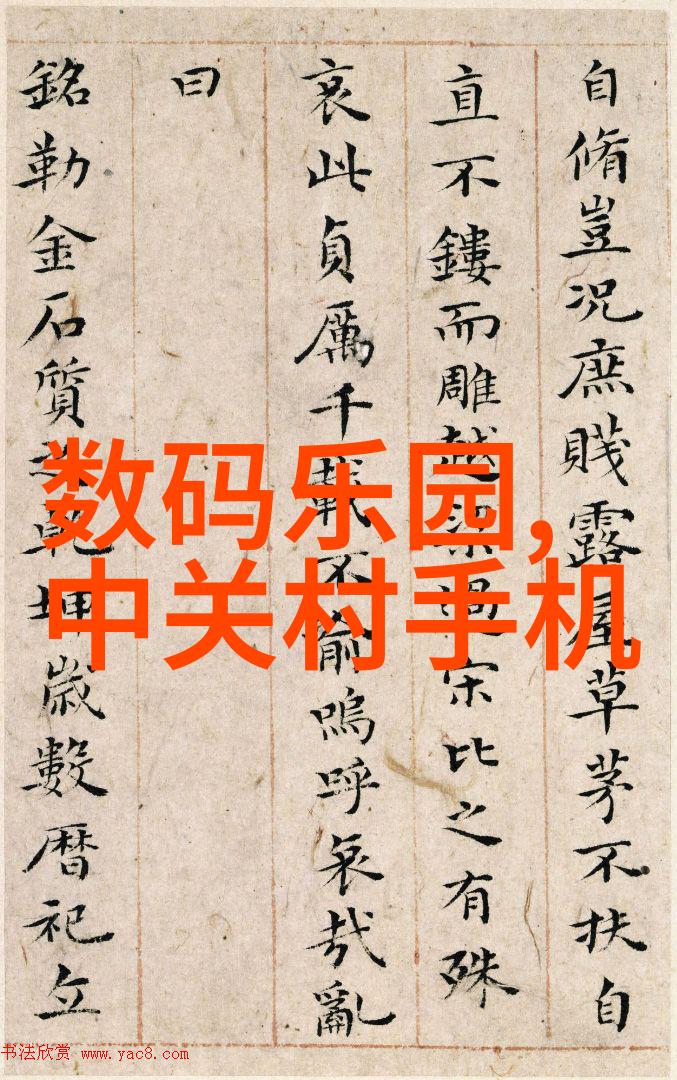 自脩豈況庶賤露屋草茅不扶自
直不鏤而雕越梁過宋比之有殊
哀此貞厲千載不渝嗚呼哀哉亂
曰
銘勒金石質之乾坤歲數暦祀立
数码乐园,
中关村手机
书法欣赏 www.yac8.com